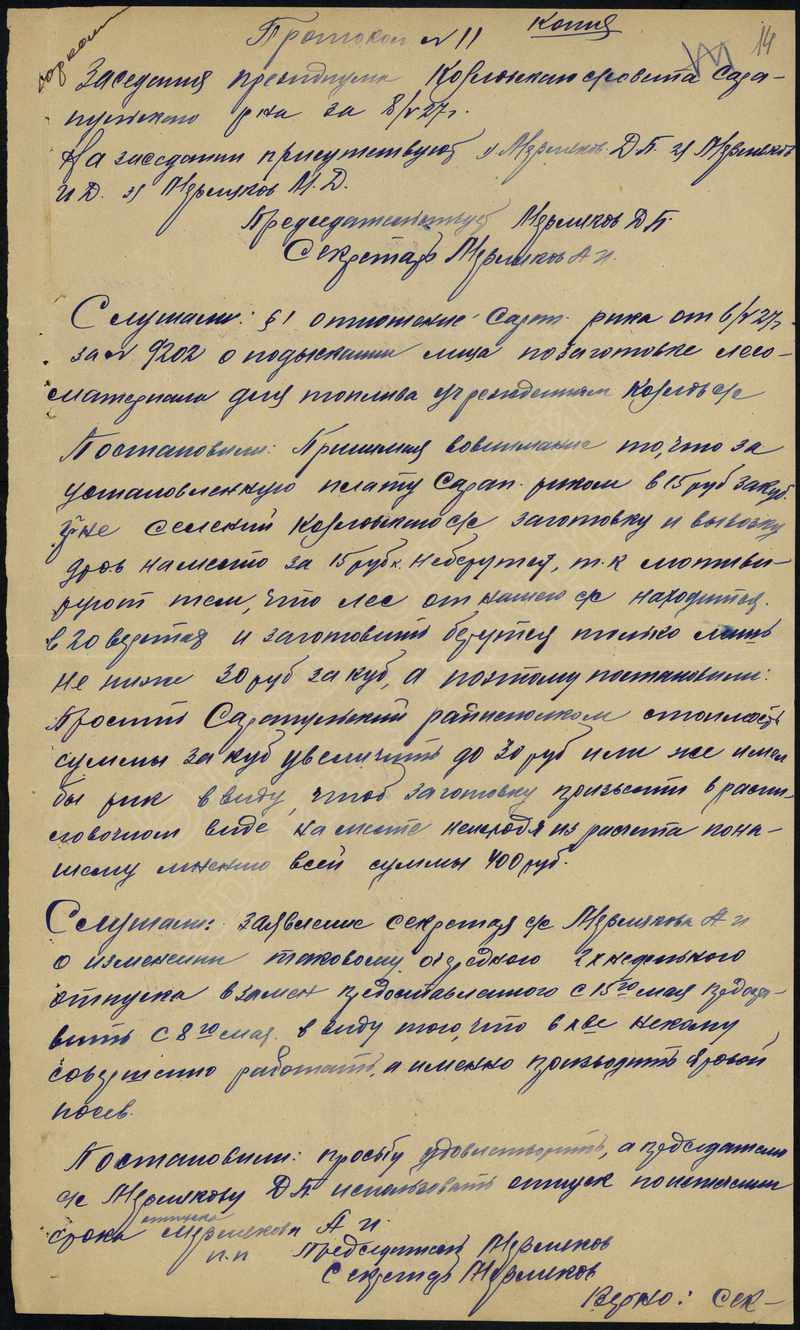 Копия
14
Протокол № 11
Заседания президиума Козловского с/совета Сара-
пульского р-на за 8/V 27 г.
На заседании присутствуют 1) Мерзляков Д.П. 2) Мерзляков
И.Д. 3) Мерзляков М.Д.
Председательствует Мерзляков Д.П.
Секретарь Мерзляков А.И.
Слушали: §1 отношение Сарап. рика от 6/V 27 г.
за № 9202 о подыскании лица по заготовке лесо-
материала для топлива учреждениям Козловс/с
Постановили: Принимая во внимание то, что за
установленную плату Сарап. риком в 15 руб за куб.
гр-не селений Козловского с/с заготовку и вывозку
дров на место за 15 руб. не берутся, т.к мотиви-
руют тем, что лес от нашего с/с находится
в 20 верстах и заготовить берутся только лишь
не ниже 30 руб за куб, а поэтому постановили:
Просить Сарапульский райисполком стоимость
суммы за куб увеличить до 30 руб или же имел
бы рик в виду, чтоб заготовку произвести в распи-
ловочном виде на месте исходя из расчета по на-
шему мнению всей суммы 400 руб.
Слушали: заявление секретаря с/с Мерзлякова А.И
о изменении таковому очередного 2х недельного
отпуска взамен предоставленного с 15го мая предоста-
вить с 8го мая в виду того, что в х-ве некому
совершенно работать, а именно производить яровой
посев.
Постановили: просьбу удовлетворить, а председателю
с/с Мерзлякову Д.П. использовать отпуск по истечении
срока отпуска Мерзлякова А.И.
п.п Председатель Мерзляков
Секретарь Мерзляков
Верно: Сек-